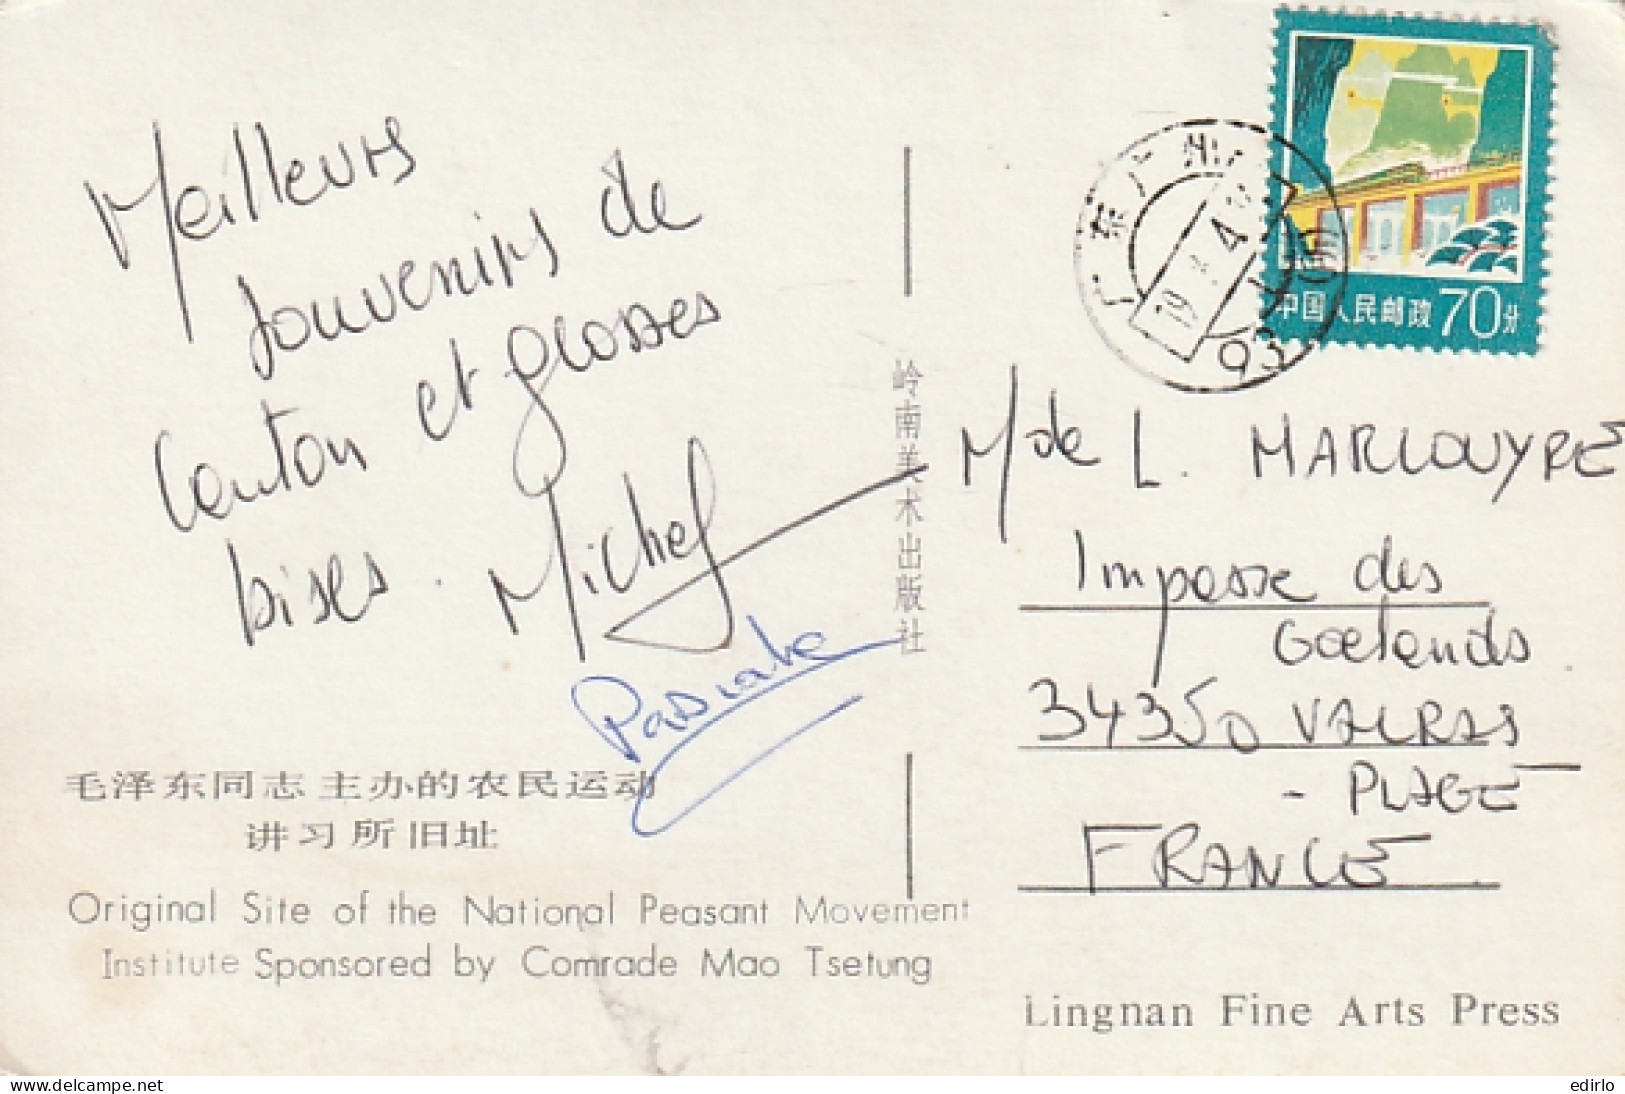 Meilleurs
souvenirs de
Canton et grosses
bises. Michel
Pascale
毛泽东同志主办的农民运动
讲习所旧址
Original Site of the National Peasant Movement
Institute Sponsored by Comrade Mao Tsetung
岭南美术出版社
广东广州
中国人民邮政 70分
Mde L.
Impasse des
Goelands
34350 VALRAS
- PLAGE
FRANCE
Lingnan Fine Arts Press
delcampe.net
edirlo